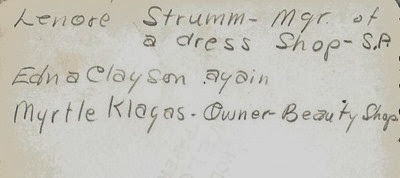 Lenore Strumm - Mgr. of
a dress Shop - S.A
Edna Clayson again
Myrtle Klagas - Owner - Beauty Shop